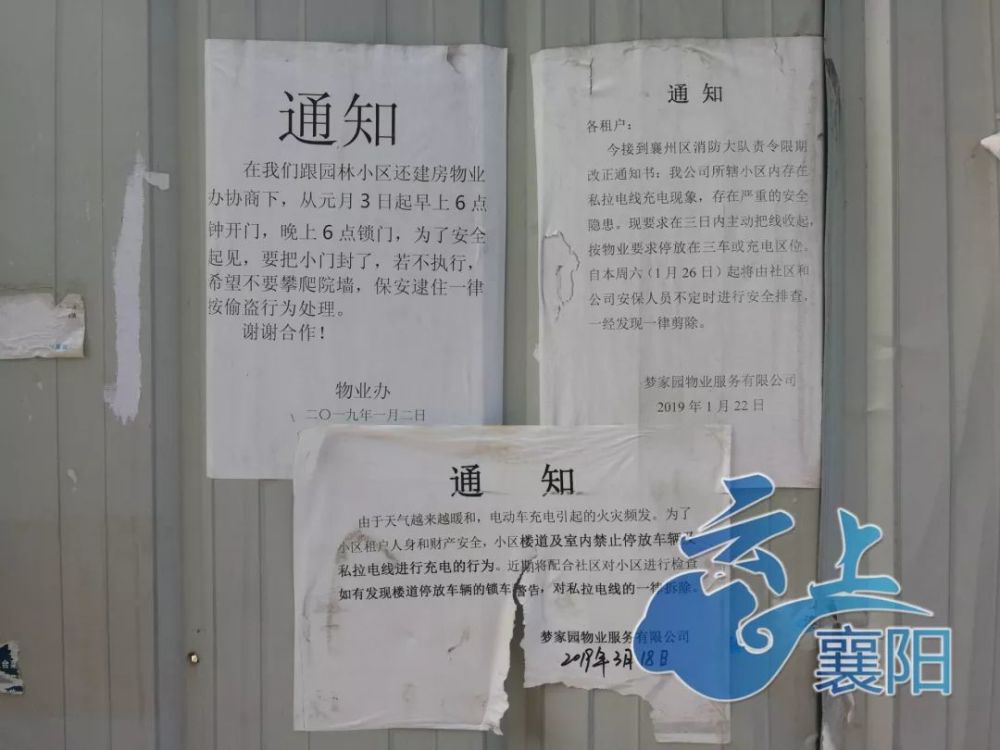 通知
在我们跟园林小区还建房物业
办协商下，从元月3日起早上6点
钟开门，晚上6点锁门，为了安全
起见，要把小门封了，若不执行，
希望不要攀爬院墙，保安逮住一律
按偷盗行为处理。
谢谢合作！
物业办
二〇一九年一月二日
通知
各租户：
今接到襄州区消防大队责令限期
改正通知书：我公司所辖小区内存在
私拉电线充电现象，存在严重的安全
隐患。现要求在三日内主动把线收起，
按物业要求停放在三车或充电区位。
自本周六（1月26日）起将由社区和
公司安保人员不定时进行安全排查，
一经发现一律剪除。
梦家园物业服务有限公司
2019年1月22日
通 知
由于天气越来越暖和，电动车充电引起的火灾频发。为了
小区租户人身和财产安全，小区楼道及室内禁止停放车辆
私拉电线进行充电的行为。近期将配合社区对小区进行检查
如有发现楼道停放车辆的锁车警告，对私拉电线的一律拆除。
梦家园物业服务有限公司
2019年3月18日
云上
襄阳